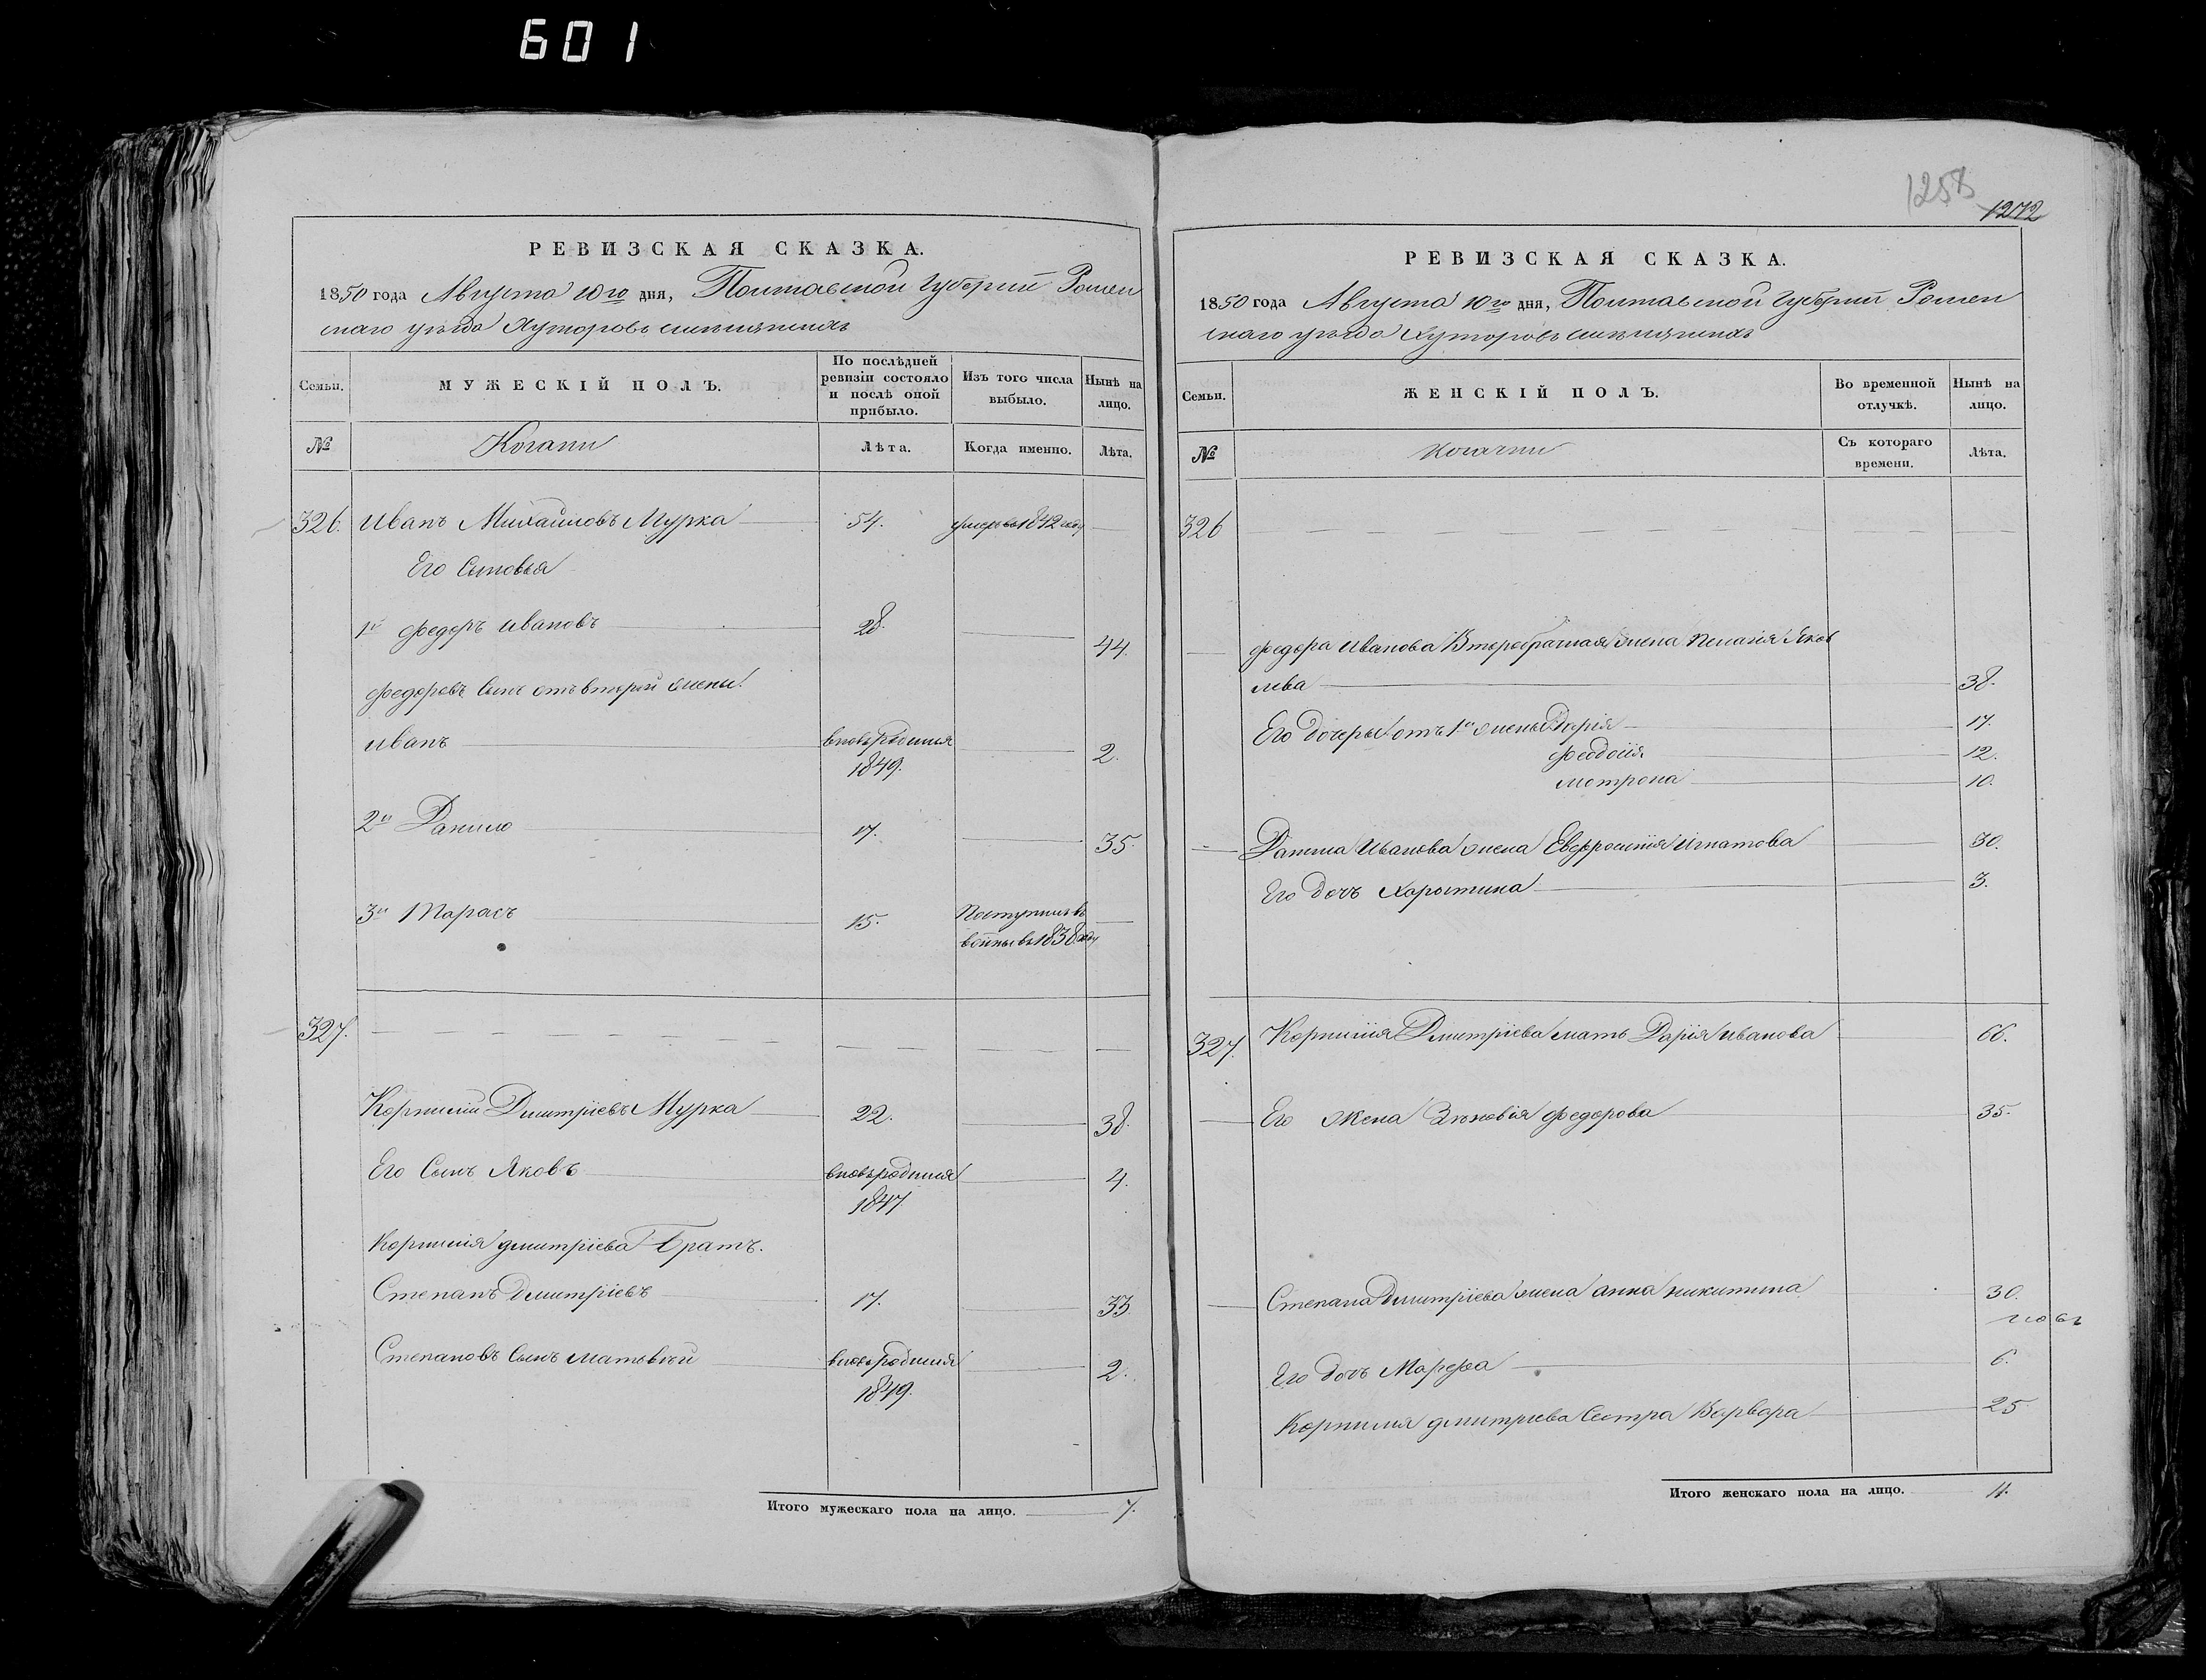 601
РЕВИЗСКАЯ СКАЗКА.
1850 года Августа 10го дня, Полтавской Губернии Ромен
скаго уезда Хуторовъ
Семьи.
МУЖЕСКІЙ ПОЛЪ.
По послѣдней ревизіи состояло и послѣ оной прибыло.
Изъ того числа выбыло.
Нынѣ на лицо.
№
Лѣта.
Когда именно.
Лѣта.
326. Иванъ Михайловъ Мурка 54. умеръ въ 1842 году
Его Сыновья
1й Федоръ Ивановъ 28. 44.
Федоровъ Сынъ отъ второй жены
Иванъ вновь родился 2.
1849.
2й Данило 17. 35.
3й Тарасъ 15. Поступилъ въ
въ 1838 году
327.
Корнилій Дмитріевъ Мурка 22. 38.
Его Сынъ Яковъ вновь родился 4.
1847
Корнилія Дмитріева Братъ.
Степанъ Дмитріевъ 17. 33.
Степановъ Сынъ Матвѣй вновь родился 2.
1849.
Итого мужескаго пола на лицо. 7.
1258
1272
РЕВИЗСКАЯ СКАЗКА.
1850 года Августа 10го дня, Полтавской Губернии Ромен
скаго уезда Хуторовъ
Семьи.
ЖЕНСКІЙ ПОЛЪ.
Во временной отлучкѣ.
Нынѣ на лицо.
№
Съ котораго времени.
Лѣта.
326
Федора Иванова Второбрачная жена Пелагія Яков
лева 38.
Его дочеры отъ 1й жены Дарія 17.
Феодосія 12.
Мотрона 10.
Данила Иванова жена Евфросинія Игнатова 30.
Его дочь Харытина 3.
327. Корнилія Дмитріева мать Дарія Иванова 66.
Его Жена Зѣновія Федорова 35.
Степана Дмитріева жена Анна Никитина 30.
Его дочь Марфа 6.
Корнилія Дмитріева Сестра Варвара 25
Итого женскаго пола на лицо. 11.